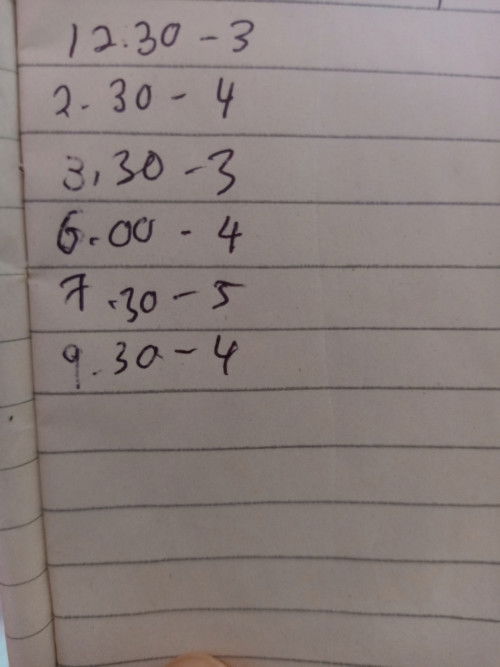 12.30 - 3
2. 30 - 4
3.30 - 3
6.00 - 4
7.30 - 5
9.30 - 4